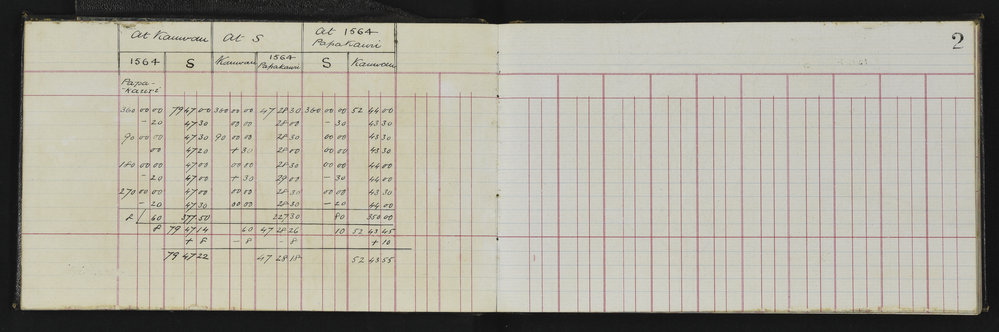 At Kauwau At S At 1564 Papakauri
1564 S Kauwau 1564 Papakauri S Kauwau
Papa-
-kauri
360 00 00 79 47 00 360 00 00 47 28 30 360 00 00 52 44 00
- 20 47 30 00 00 28 00 - 30 43 30
90 00 00 47 30 90 00 00 28 30 00 00 43 30
00 47 20 + 30 28 00 00 00 43 30
180 00 00 47 00 00 00 28 30 00 00 44 00
- 20 47 00 + 30 29 00 - 30 44 00
270 00 00 47 00 00 00 28 30 00 00 43 30
- 20 47 30 00 00 28 30 - 20 44 00
8 60 377 50 227 30 80 350 00
8 79 47 14 60 47 28 26 10 52 43 45
+ 8 - 8 - 8 + 10
79 47 22 47 28 18 52 43 55
2